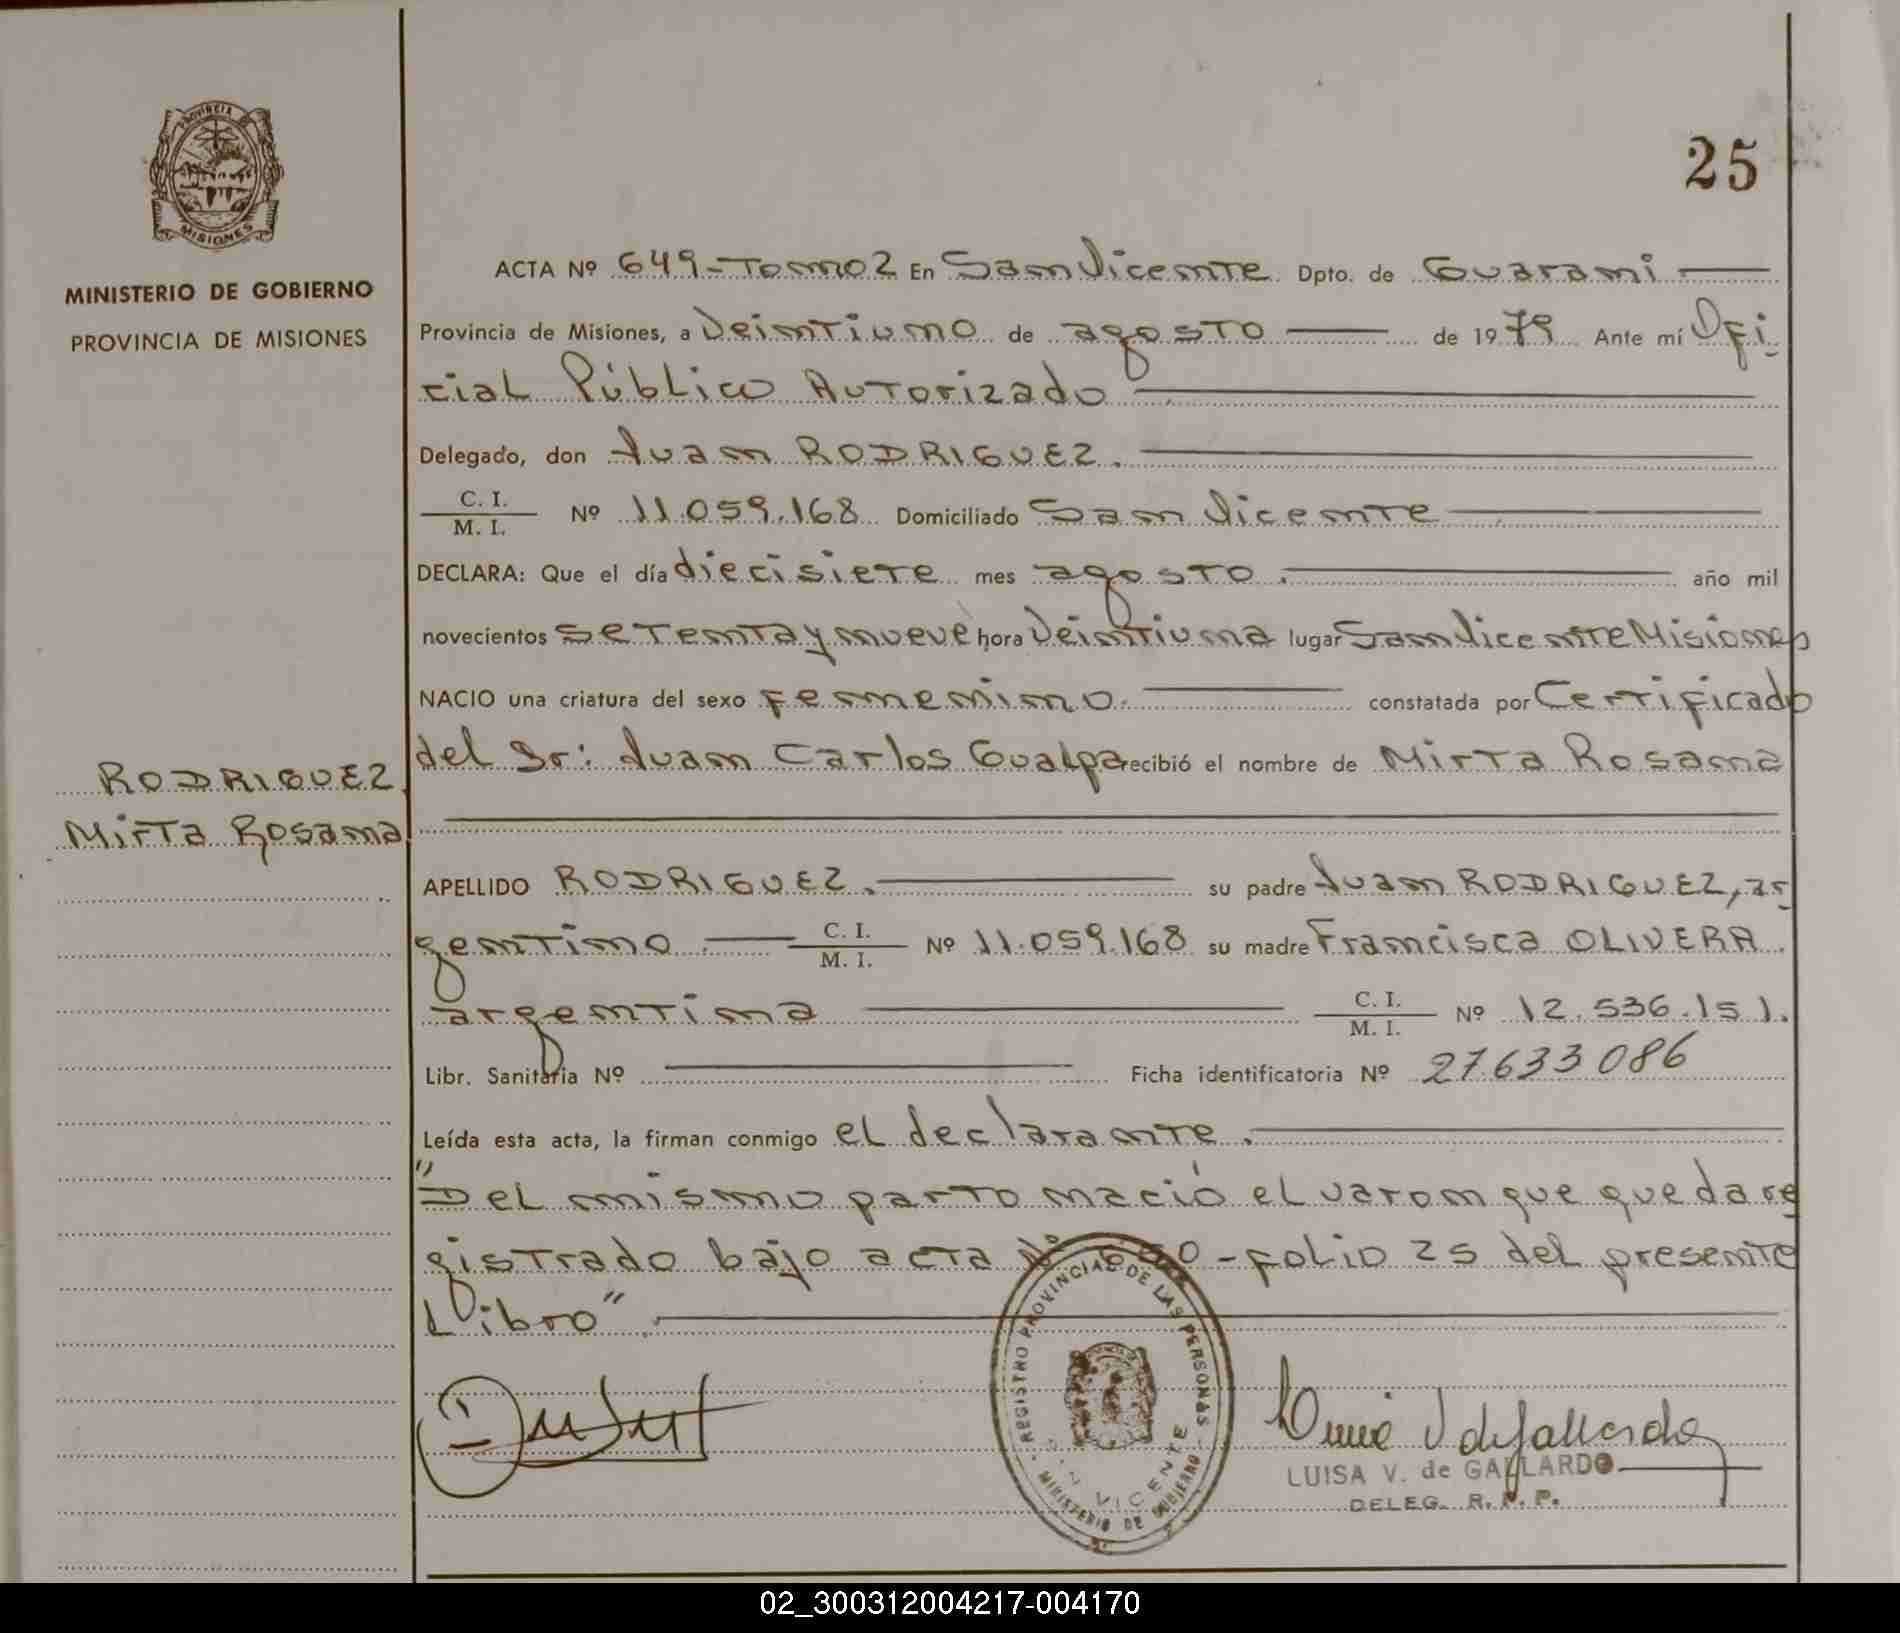 PROVINCIA
MISIONES
MINISTERIO DE GOBIERNO
PROVINCIA DE MISIONES
25
ACTA Nº 649-Tomo 2 En San Vicente Dpto. de Guarani
Provincia de Misiones, a Veintiuno de agosto de 1979 Ante mí Ofi
cial Público Autorizado
Delegado, don Juan RODRIGUEZ.
C. I.
M. I.
Nº 11.059.168 Domiciliado San Vicente
DECLARA: Que el día diecisiete mes agosto. año mil
novecientos setenta y nueve hora Veintiuna lugar San Vicente Misiones
NACIO una criatura del sexo femenino. constatada por Certificado
del Sr: Juan Carlos Gualpa recibió el nombre de Mirta Rosana
RODRIGUEZ,
Mirta Rosana
APELLIDO RODRIGUEZ. su padre Juan RODRIGUEZ, ar
gentino. C. I. / M. I. Nº 11.059.168 su madre Francisca OLIVERA
argentina C. I. / M. I. Nº 12.536.151.
Libr. Sanitaria Nº Ficha identificatoria Nº 27.633 086
Leída esta acta, la firman conmigo el declarante.
"Del mismo parto nació el varon que queda re
gistrado bajo acta Nº 650-folio 25 del presente
Libro"
REGISTRO PROVINCIAL DE LAS PERSONAS
SAN VICENTE
MINISTERIO DE GOBIERNO
LUISA V. de GALLARDO
DELEG. R. P. P.
02_300312004217-004170